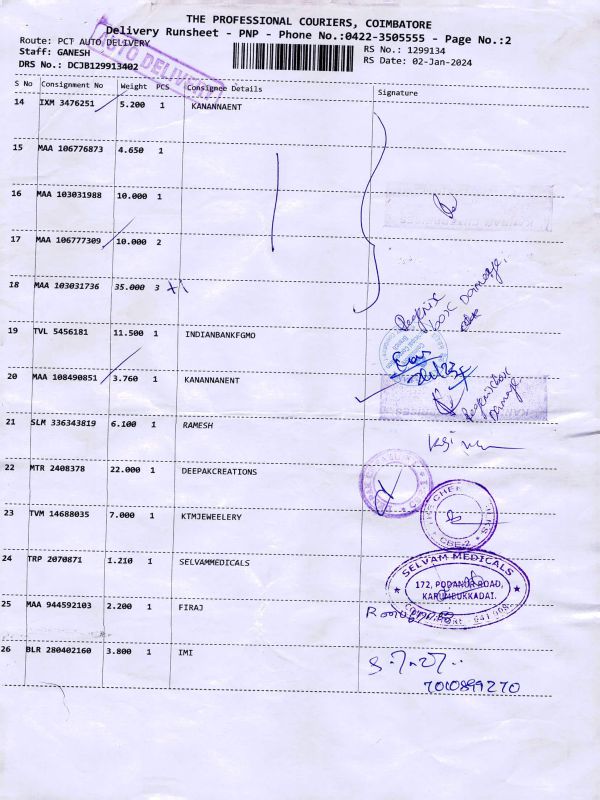 THE PROFESSIONAL COURIERS, COIMBATORE
Delivery Runsheet - PNP - Phone No.:0422-3505555 - Page No.:2
Route: PCT AUTO DELIVERY
RS No.: 1299134
Staff: GANESH
RS Date: 02-Jan-2024
DRS No.: DCJB129913402
AUTO DELIVERY
S No Consignment No Weight PCS Consignee Details Signature
14 IXM 3476251 5.200 1 KANANNAENT
15 MAA 106776873 4.650 1
16 MAA 103031988 10.000 1
17 MAA 106777309 10.000 2
18 MAA 103031736 35.000 3
box Damage
19 TVL 5456181 11.500 1 INDIANBANKFGMO
20 MAA 108490851 3.760 1 KANANNANENT
21 SLM 336343819 6.100 1 RAMESH
22 MTR 2408378 22.000 1 DEEPAKCREATIONS
23 TVM 14688035 7.000 1 KTMJEWELERY
CBE-2
24 TRP 2070871 1.210 1 SELVAMMEDICALS
SELVAM MEDICALS
172, PODANUR ROAD,
KARUMBUKKADAI.
25 MAA 944592103 2.200 1 FIRAJ
26 BLR 280402160 3.800 1 IMI
7010899270